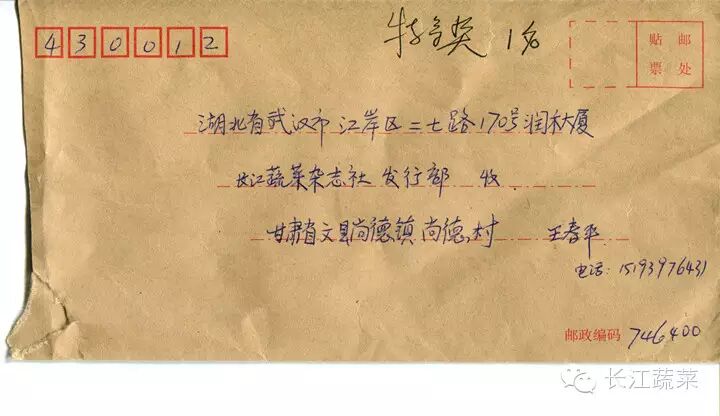 430012
特等奖 1名
贴 邮
票 处
湖北省武汉市江岸区二七路170号润禾大厦
长江蔬菜杂志社 发行部 收
甘肃省文县尚德镇尚德村 王春平
电话:15193976431
邮政编码 746400
长江蔬菜